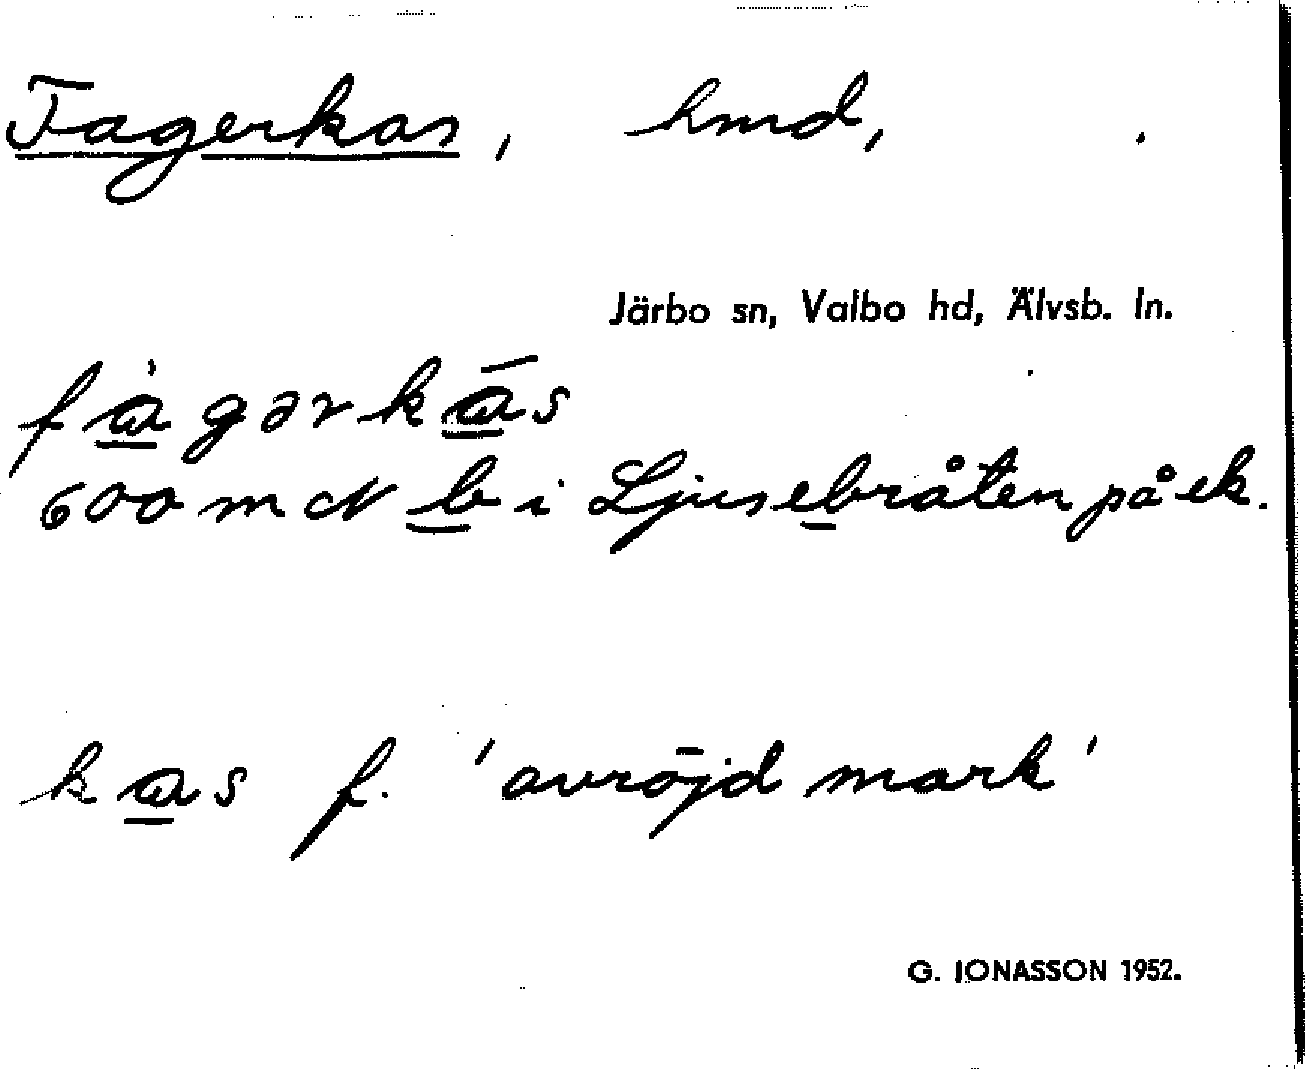 Fagerkas, hmd,
Järbo sn, Valbo hd, Älvsb. ln.
fàgərkās
600 m N b i Ljusebråten på ek.
kas f. 'avröjd mark'
G. JONASSON 1952.